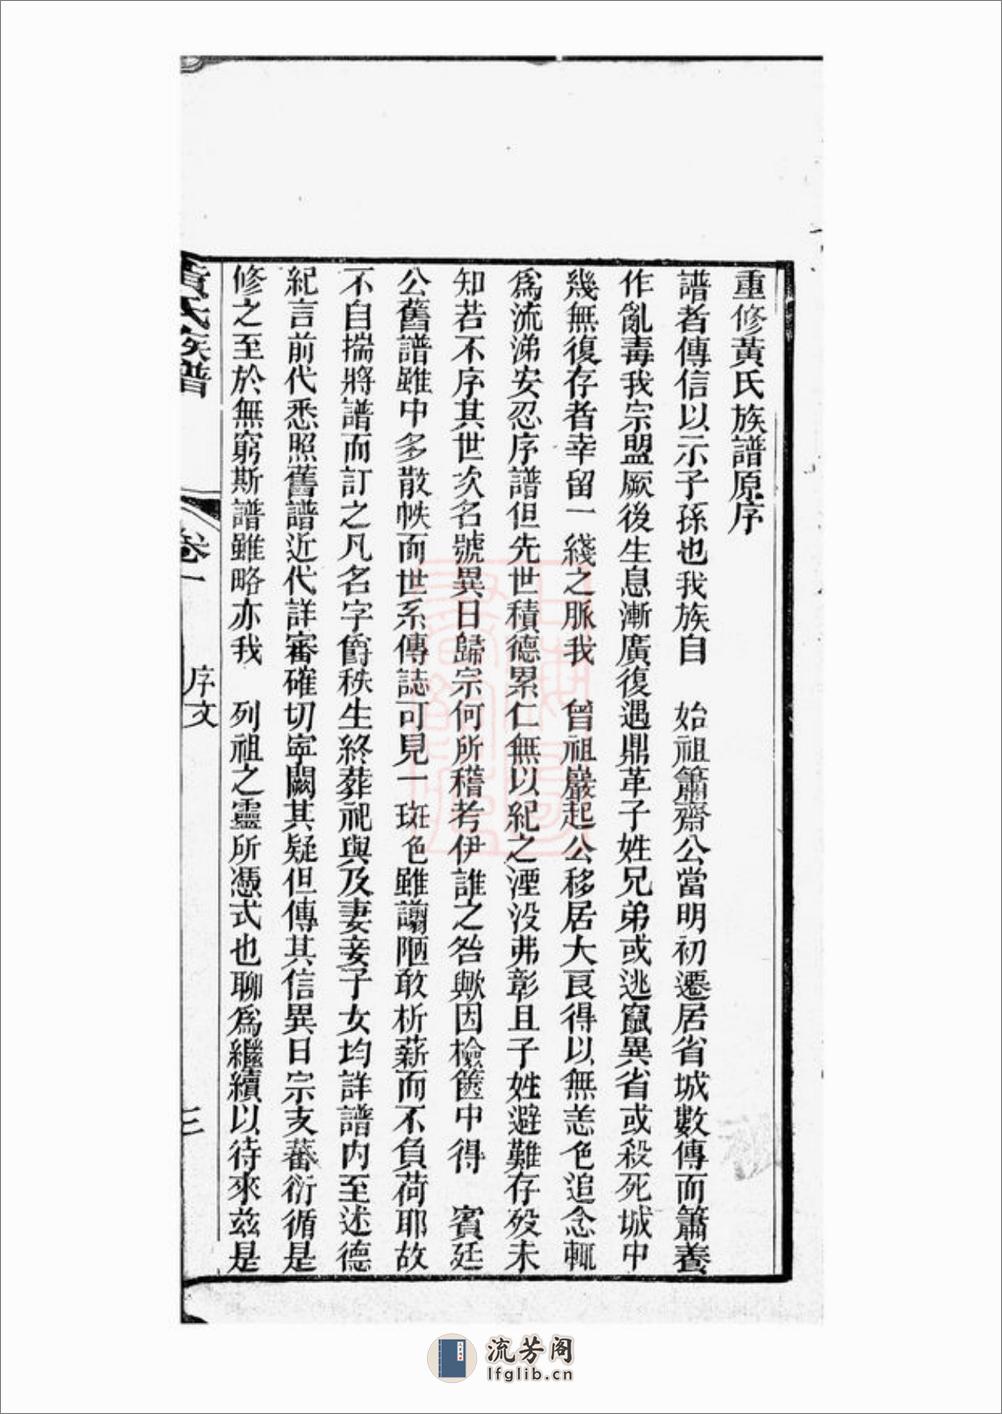 重修黃氏族譜原序
譜者傳信以示子孫也我族自　始祖簫齋公當明初遷居省城數傳而簫養
作亂毒我宗盟厥後生息漸廣復遇鼎革子姓兄弟或逃竄異省或殺死城中
幾無復存者幸留一綫之脈我　曾祖巖起公移居大良得以無恙色追念輒
爲流涕安忍序譜但先世積德累仁無以紀之湮没弗彰且子姓避難存歿未
知若不序其世次名號異日歸宗何所稽考伊誰之咎歟因檢篋中得　賓廷
公舊譜雖中多散帙而世系傳誌可見一斑色雖譾陋敢析薪而不負荷耶故
不自揣將譜而訂之凡名字爵秩生終葬祀與及妻妾子女均詳譜内至述德
紀言前代悉照舊譜近代詳審確切寧闕其疑但傳其信異日宗支蕃衍循是
修之至於無窮斯譜雖略亦我　列祖之靈所憑式也聊爲繼續以待來兹是
黃氏族譜　卷一　序文　三
流芳阁
lfglib.cn